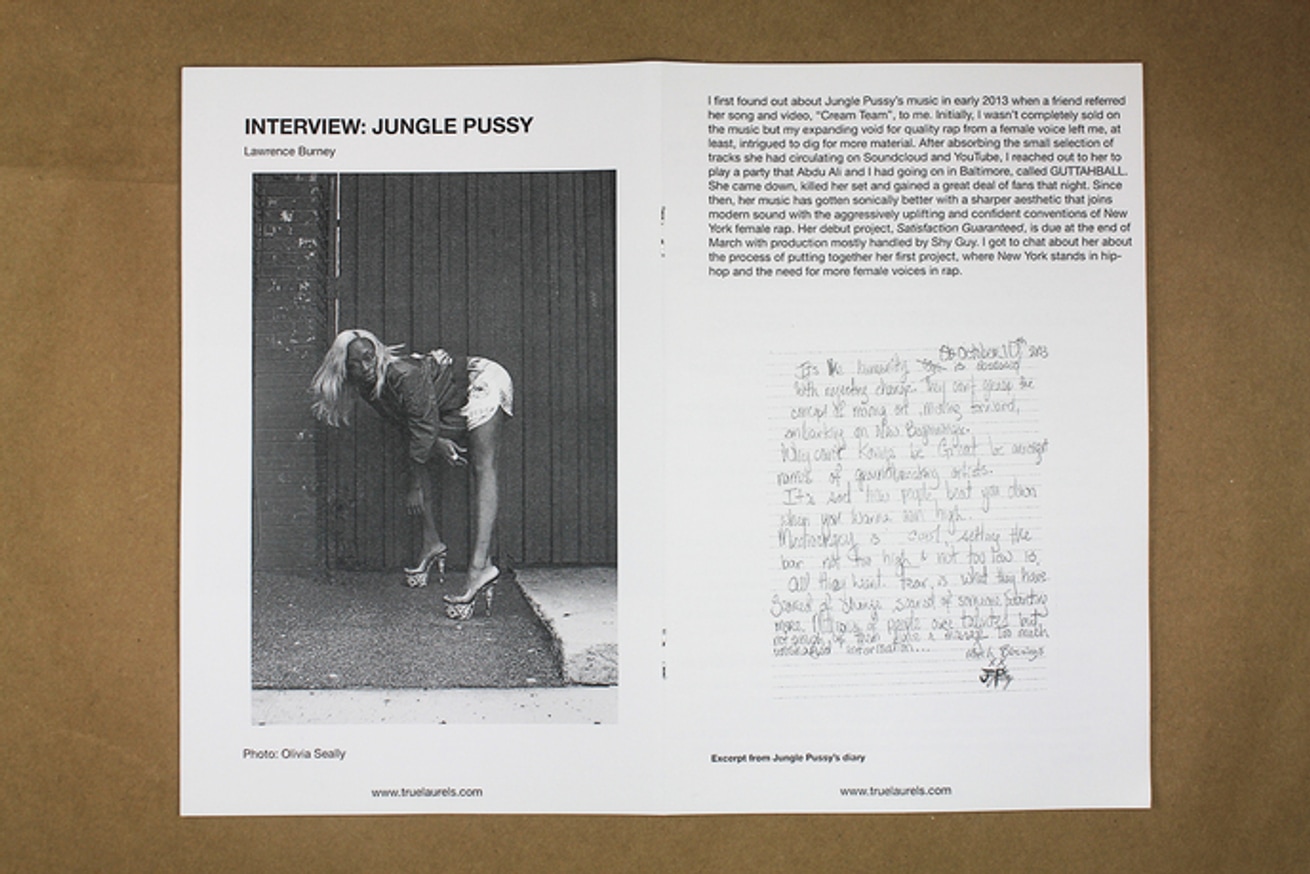 INTERVIEW: JUNGLE PUSSY
Lawrence Burney
Photo: Olivia Seally
www.truelaurels.com
I first found out about Jungle Pussy's music in early 2013 when a friend referred
her song and video, “Cream Team”, to me. Initially, I wasn't completely sold on
the music but my expanding void for quality rap from a female voice left me, at
least, intrigued to dig for more material. After absorbing the small selection of
tracks she had circulating on Soundcloud and YouTube, I reached out to her to
play a party that Abdu Ali and I had going on in Baltimore, called GUTTAHBALL.
She came down, killed her set and gained a great deal of fans that night. Since
then, her music has gotten sonically better with a sharper aesthetic that joins
modern sound with the aggressively uplifting and confident conventions of New
York female rap. Her debut project, Satisfaction Guaranteed, is due at the end of
March with production mostly handled by Shy Guy. I got to chat about her about
the process of putting together her first project, where New York stands in hip-
hop and the need for more female voices in rap.
October 10th 2013
It's like humanity is obsessed
with rejecting change. They can't grasp the
concept of moving on, moving forward,
embarking on New Beginnings.
Why can't Kanye be Great be amongst
names of groundbreaking artists.
It's sad how people beat you down
when you wanna aim high.
Mediocrity is cool, setting the
bar not too high & not too low is
all they want. Fear, is what they have
Scared of change, scared of someone
more. Millions of people are talented but
not enough of them have a message. Too much
information...
JP
Excerpt from Jungle Pussy's diary
www.truelaurels.com